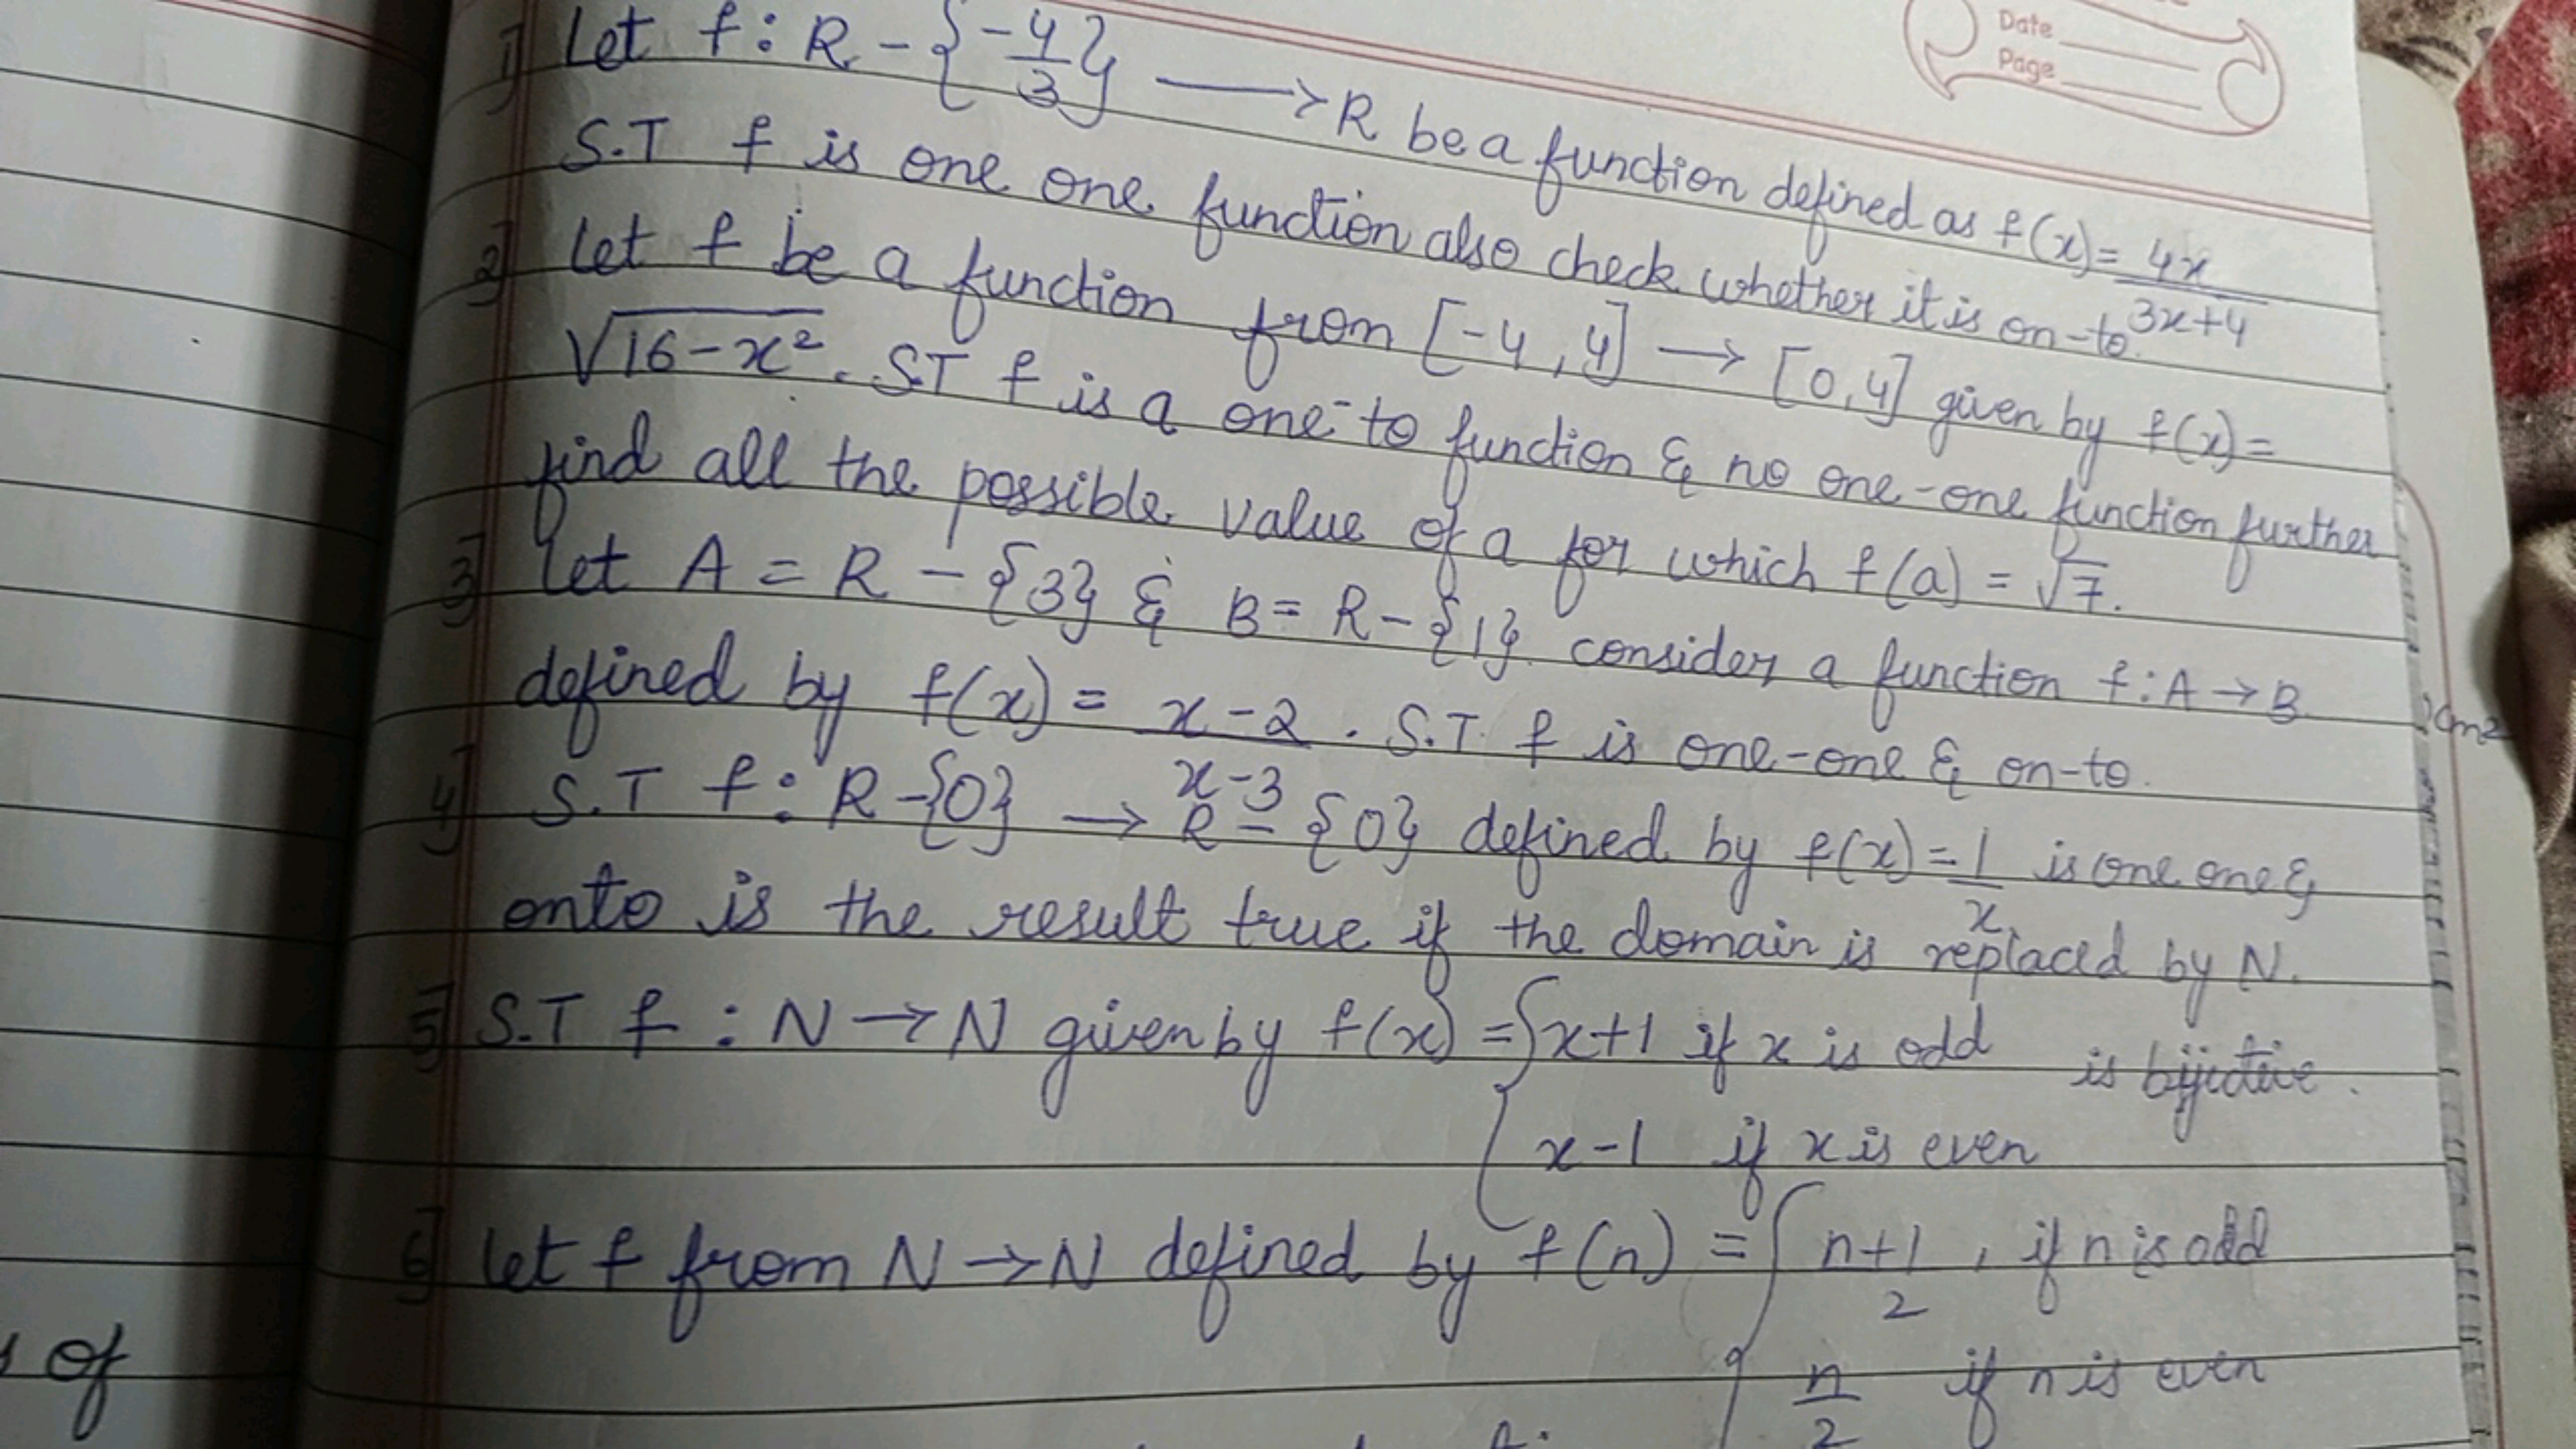 Date
Page
1] Let f : R - {-4/3} ⟶ R be a function defined as f(x) = 4x/3x+4
S.T f is one one function also check whether it is on-to.
2] Let f be a function from [-4,4] → [0,4] given by f(x) =
√16-x². ST f is a one-to function & no one-one function further
find all the possible value of a for which f(a) = √7.
3] Let A = R - {3} & B = R - {1} consider a function f : A → B
defined by f(x) = x-2/x-3 . S.T f is one-one & on-to.
4] S.T f : R - {0} → R - {0} defined by f(x) = 1/x is one one &
onto is the result true if the domain is replaced by N.
5] S.T f : N → N given by f(x) = { x+1 if x is odd is bijective.
x-1 if x is even
6] Let f from N → N defined by f(n) = { n+1/2 , if n is odd
n/2 if n is even
of